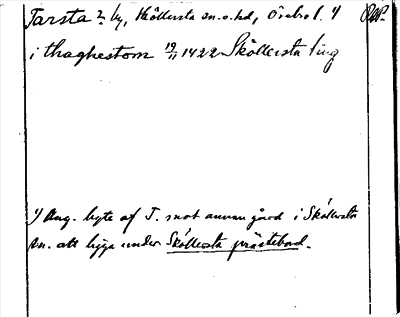 Tarsta 2 by, Sköllersta sn. o. hd, Örebro l. 1)
i thaghestom 19/11 1422 Sköllersta ting
1) Ang. byte af T. mot annan gård i Sköllersta
sn. att ligga under Sköllersta prästebord.